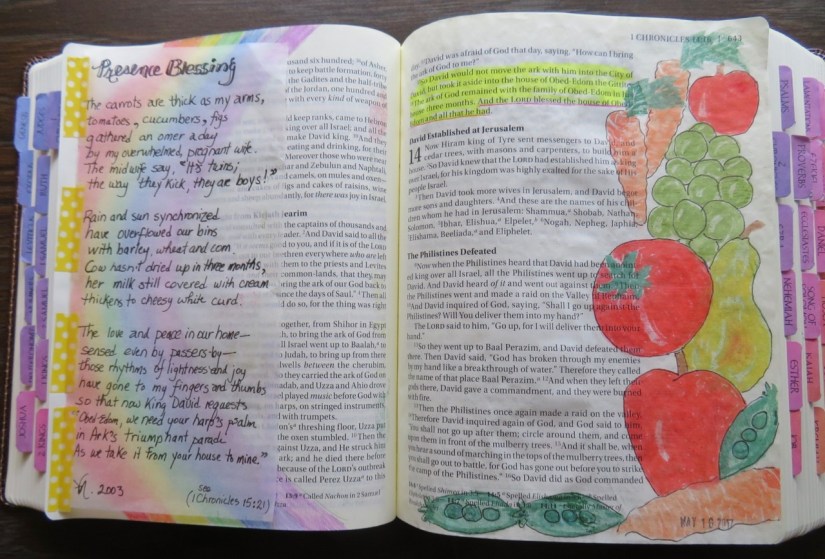 Presence Blessing
The carrots are thick as my arms,
tomatoes, cucumbers, figs
gathered an omer a day
by my overwhelmed, pregnant wife.
The midwife say, "It's twins,
the way they kick, they are boys!"
Rain and sun synchronized
have overflowed our bins
with barley, wheat and corn.
Cow hasn't dried up in three months,
her milk still covered with cream
thickens to cheesy white curd.
The love and peace in our home—
sensed even by passers-by—
those rhythms of lightness and joy
have gone to my fingers and thumbs
so that now King David requests
"Obed-Edom, we need your harp's psalm
in Ark's triumphant parade
As we take it from your house to mine."
2003
see
(1 Chronicles 15:21)
usand six hundred; of Asher,
to keep battle formation, forty
the Gadites and the half-tribe
f the Jordan, one hundred and
with every kind of weapon of
ld keep ranks, came to Hebron
ing over all Israel; and all the
make David king. And they
eating and drinking, for their
Moreover those who were near
har and Zebulun and Naphtali,
d camels, on mules and oxen—
igs and cakes of raisins, wine
antly, for there was joy in Israel.
Kirjath Jearim
with the captains of thousands and
eader. And David said to all the
d to you, and if it is of the LORD
thren everywhere who are left
them to the priests and Levites
common-lands, that they may
ring the ark of our God back to
nce the days of Saul." Then all
d do so, for the thing was right
ogether, from Shihor in Egypt
h, to bring the ark of God from
l Israel went up to Baalah, to
Judah, to bring up from there
wells between the cherubim,
o they carried the ark of God on
adab, and Uzza and Ahio drove
d played music before God with
arps, on stringed instruments,
d with trumpets.
on's threshing floor, Uzza put
the oxen stumbled. Then the
ainst Uzza, and He struck him
ark; and he died there before
because of the LORD's outbreak
e is called Perez Uzza to this
13:9 Called Nachon in 2 Samuel
1 CHRONICLES 14:16 | 643
day. David was afraid of God that day, saying, "How can I bring
the ark of God to me?"
So David would not move the ark with him into the City of
David, but took it aside into the house of Obed-Edom the Gittite.
The ark of God remained with the family of Obed-Edom in his
house three months. And the LORD blessed the house of Obed-
Edom and all that he had.
David Established at Jerusalem
14 Now Hiram king of Tyre sent messengers to David, and
cedar trees, with masons and carpenters, to build him a
house. So David knew that the LORD had established him as king
over Israel, for his kingdom was highly exalted for the sake of His
people Israel.
Then David took more wives in Jerusalem, and David begot
more sons and daughters. And these are the names of his chil-
dren whom he had in Jerusalem: Shammua, Shobab, Nathan,
Solomon, Ibhar, Elishua, Elpelet, Nogah, Nepheg, Japhia,
Elishama, Beeliada, and Eliphelet.
The Philistines Defeated
Now when the Philistines heard that David had been anoint-
ed king over all Israel, all the Philistines went up to search for
David. And David heard of it and went out against them. Then
the Philistines went and made a raid on the Valley of Rephaim.
And David inquired of God, saying, "Shall I go up against the
Philistines? Will You deliver them into my hand?"
The LORD said to him, "Go up, for I will deliver them into your
hand."
So they went up to Baal Perazim, and David defeated them
there. Then David said, "God has broken through my enemies
by my hand like a breakthrough of water." Therefore they called
the name of that place Baal Perazim. And when they left their
gods there, David gave a commandment, and they were burned
with fire.
Then the Philistines once again made a raid on the valley.
Therefore David inquired again of God, and God said to him,
"You shall not go up after them; circle around them, and come
upon them in front of the mulberry trees. And it shall be, when
you hear a sound of marching in the tops of the mulberry trees, then
you shall go out to battle, for God has gone out before you to strike
the camp of the Philistines." So David did as God commanded
MAY 18 2017
PSALMS
PROVERBS
ECCLESIASTES
SONG OF
NEHEMIAH
ESTHER
JOB
LAMENTATIONS
DANIEL
RUTH
JOSHUA
2 KINGS